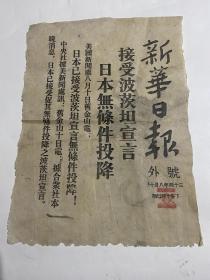 新華日報
號外
接受波茨坦宣言
日本無條件投降
美國新聞處八月十日舊金山電：
日本已接受波茨坦宣言無條件投降！
中央社據美新聞處訊：舊金山十日電：據合衆社本
晚消息，日本已接受促其無條件投降之波茨坦宣言。